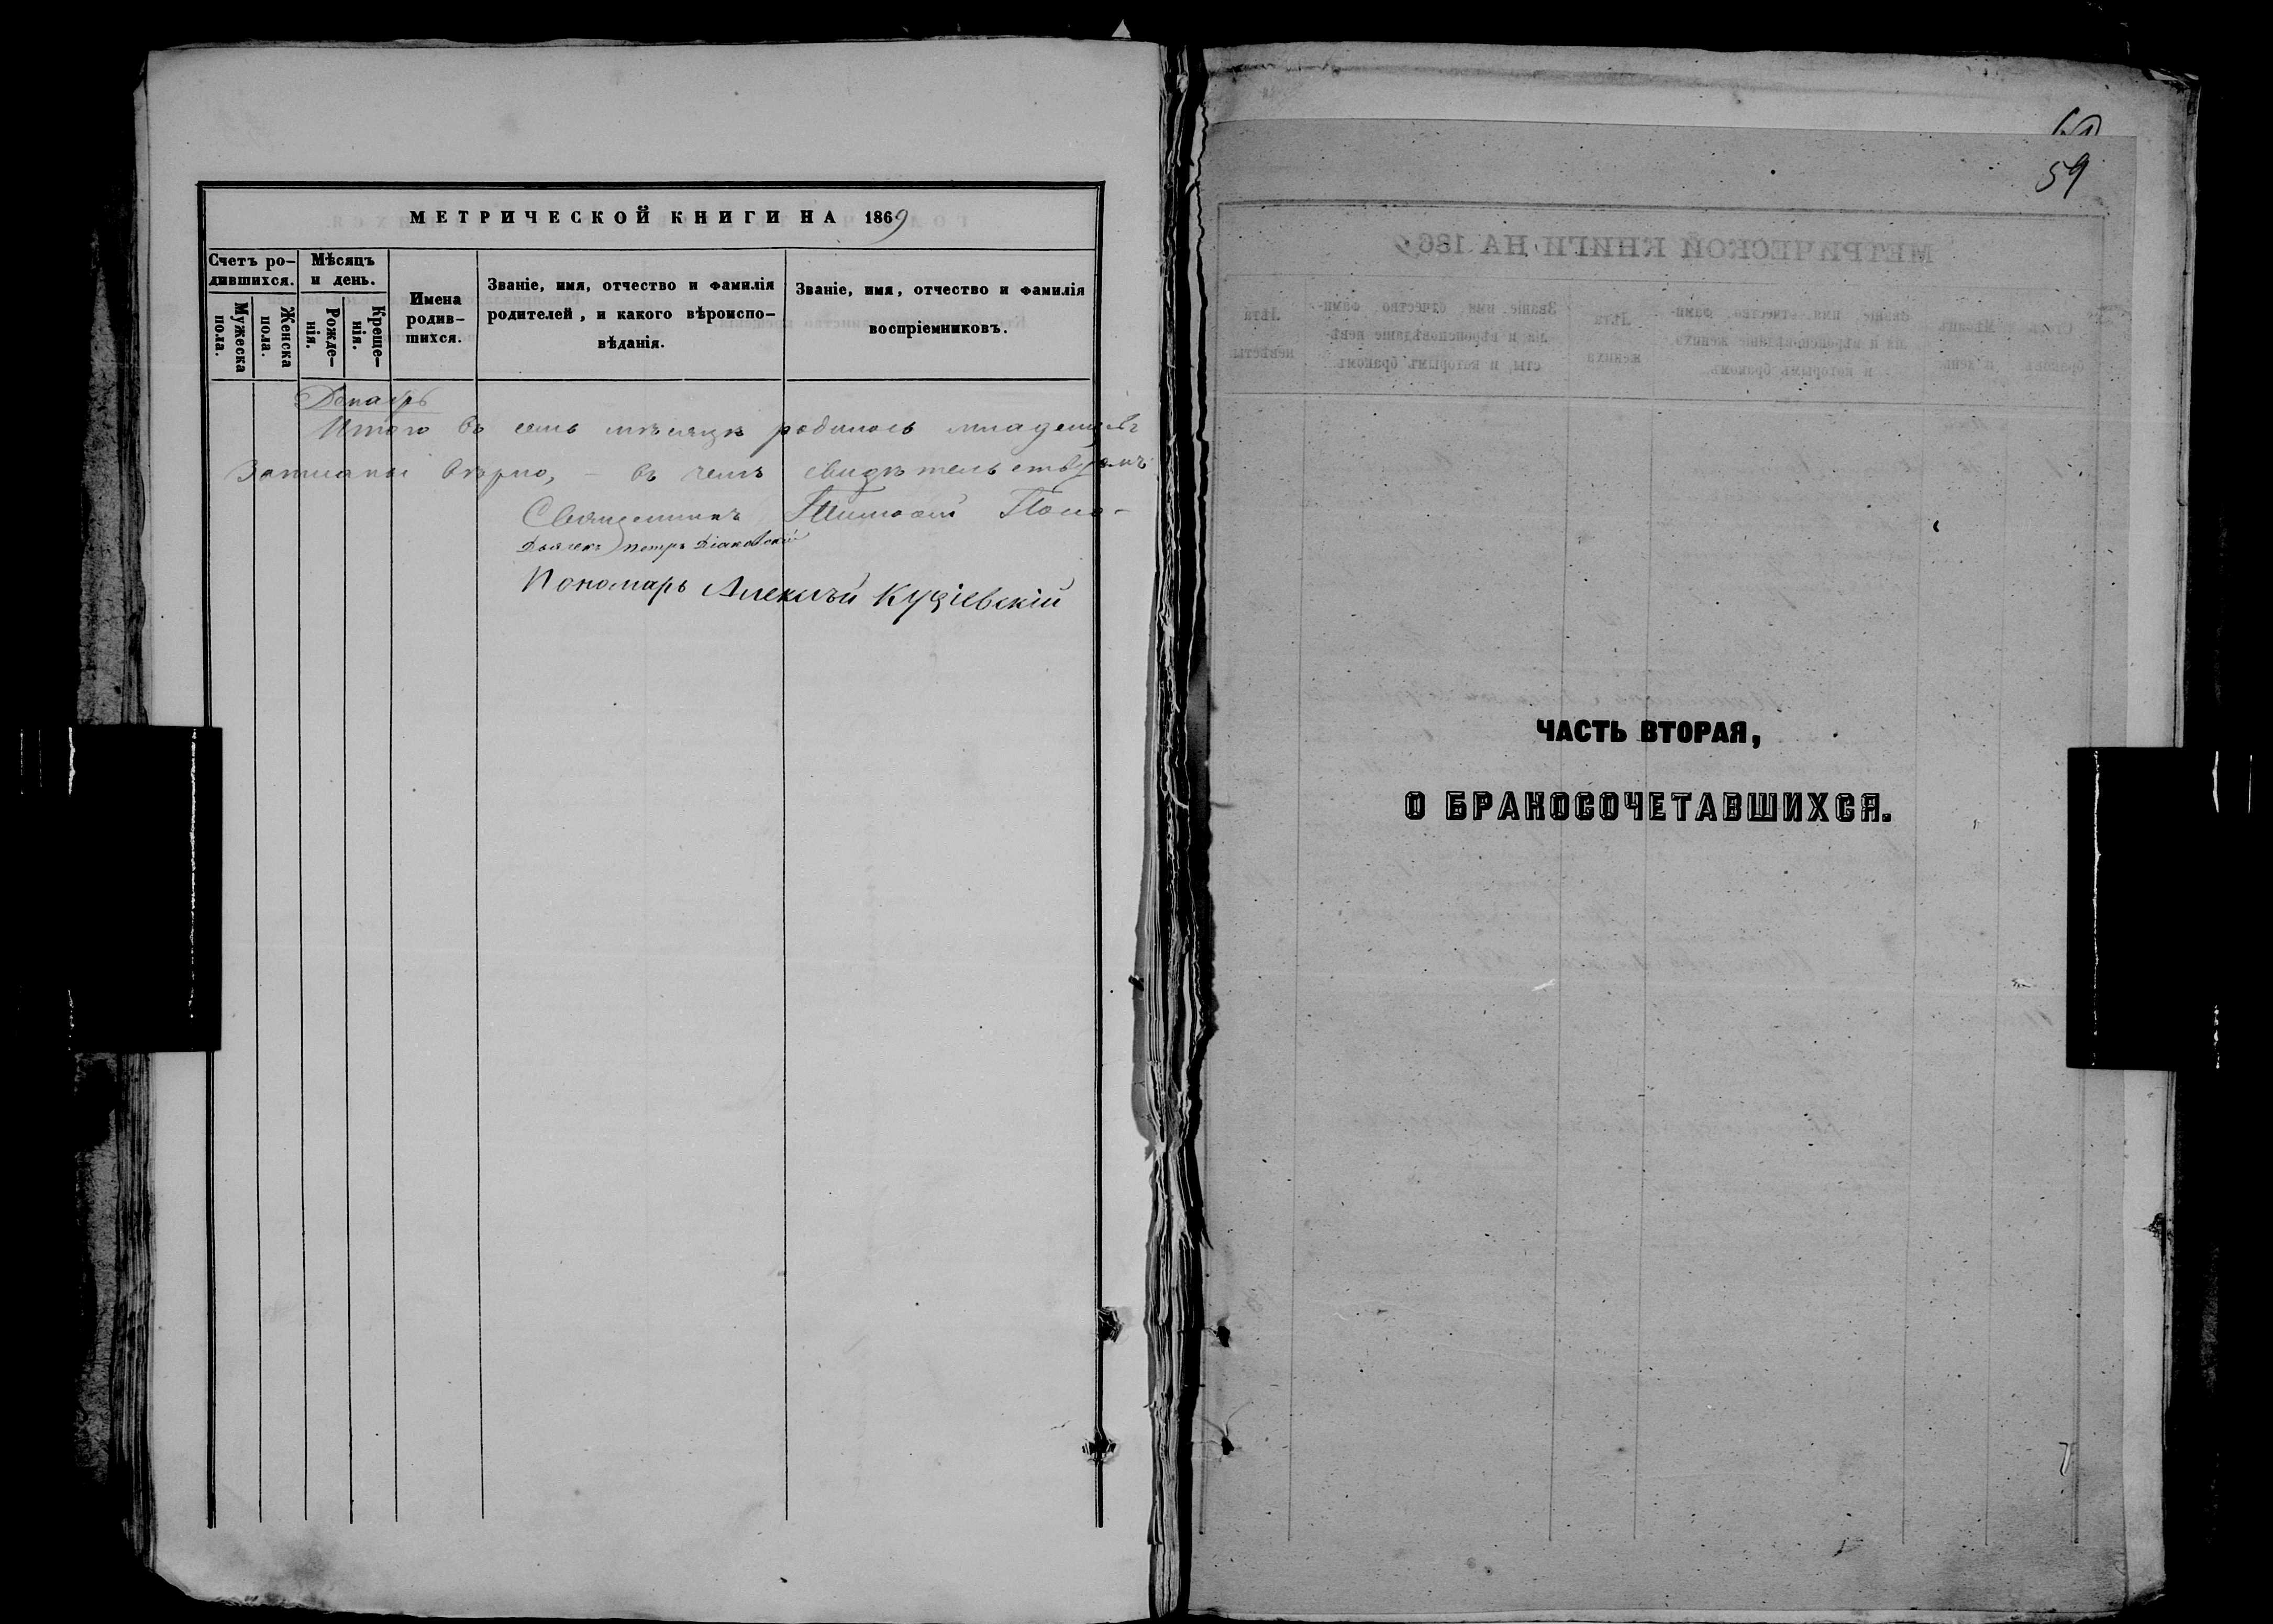 МЕТРИЧЕСКОЙ КНИГИ НА 1869
Счетъ ро-
дившихся.
Мужеска
пола.
Женска
пола.
Мѣсяцъ
и день.
Рожде-
нія.
Креще-
нія.
Имена
родив-
шихся.
Званіе, имя, отчество и фамилія
родителей, и какого вѣроиспо-
вѣданія.
Званіе, имя, отчество и фамилія
воспріемниковъ.
Декабрь
Итого въ семъ мѣсяцѣ родилось младенцевъ
Записаны вѣрно, – въ чемъ свидѣтельствуемъ
Священникъ Тимоѳей
Дьячекъ Петръ
Пономарь Алексѣй
59
ЧАСТЬ ВТОРАЯ,
О БРАКОСОЧЕТАВШИХСЯ.